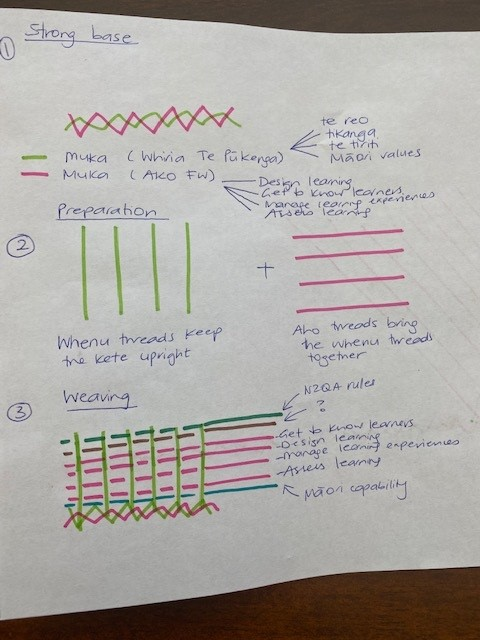 1
Strong base
te reo
tikanga
te tiriti
Māori values
muka (Whiria Te Pūkenga)
Muka (Ako FW)
Design learning
Get to know learners
Manage learning experiences
Assess learning
Preparation
2
+
Whenu threads keep
the kete upright
Aho threads bring
the whenu threads
together
3
Weaving
NZQA rules
?
Get to know learners
Design learning
manage learning experiences
Assess learning
Māori capability